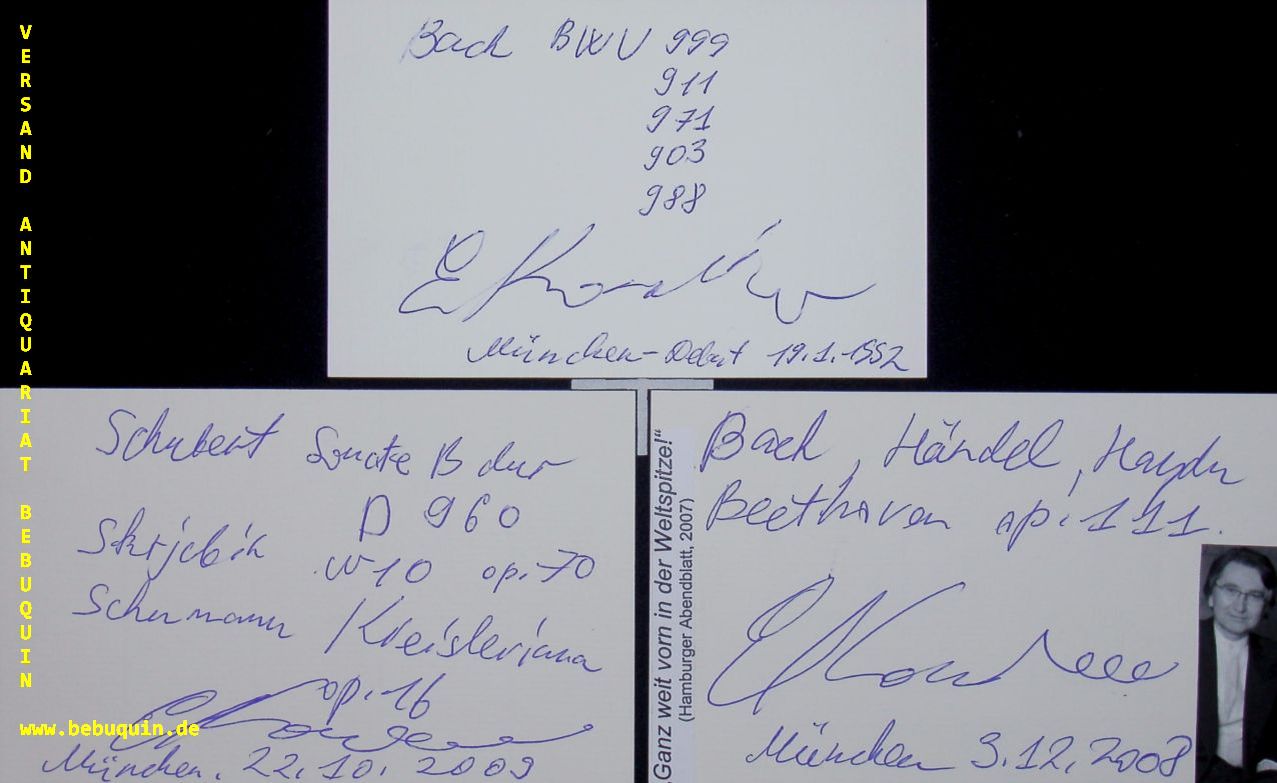 VERSAND ANTIQUARIAT BEBUQUIN
www.bebuquin.de
Bach BWV 999
911
971
903
988
München-Debut 19.1.1992
Schubert Sonate B dur
D 960
Skrjabin N10 op. 70
Schumann Kreisleriana
op. 16
München. 22.10.2009
„Ganz weit vorn in der Weltspitze!“
(Hamburger Abendblatt, 2007)
Bach, Händel, Haydn
Beethoven op. 111.
München 3.12.2008